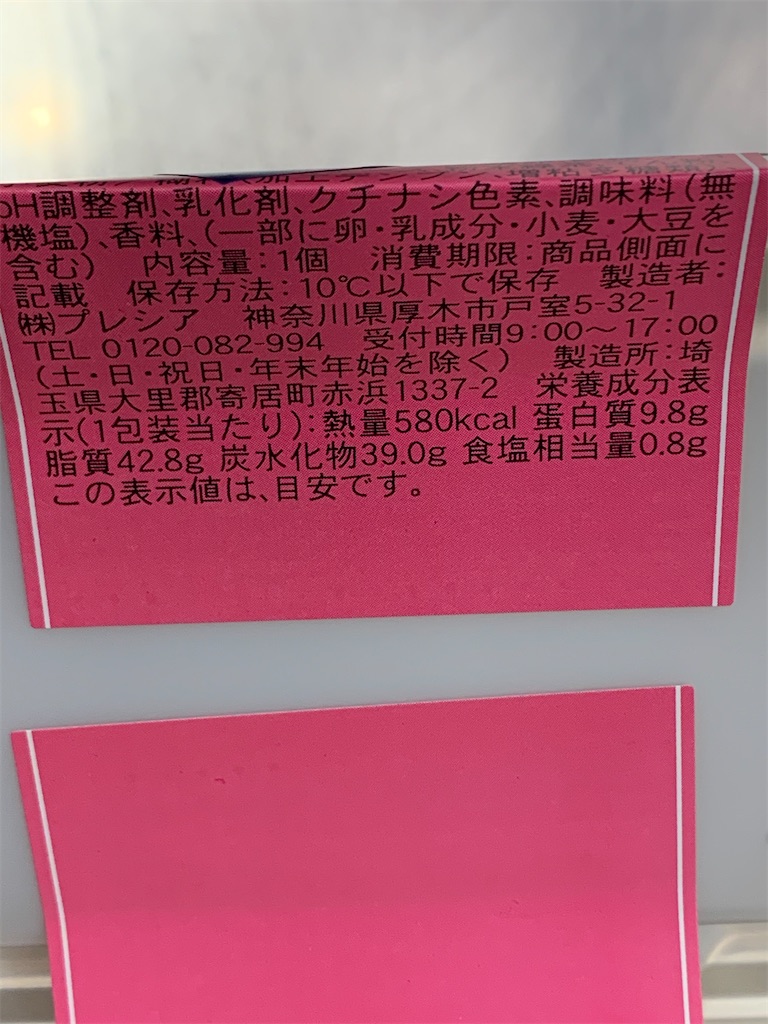 pH調整剤、乳化剤、クチナシ色素、調味料(無
機塩)、香料、(一部に卵・乳成分・小麦・大豆を
含む) 内容量:1個 消費期限:商品側面に
記載 保存方法:10℃以下で保存 製造者:
㈱プレシア 神奈川県厚木市戸室5-32-1
TEL 0120-082-994 受付時間9:00〜17:00
(土・日・祝日・年末年始を除く) 製造所:埼
玉県大里郡寄居町赤浜1337-2 栄養成分表
示(1包装当たり):熱量580kcal 蛋白質9.8g
脂質42.8g 炭水化物39.0g 食塩相当量0.8g
この表示値は、目安です。